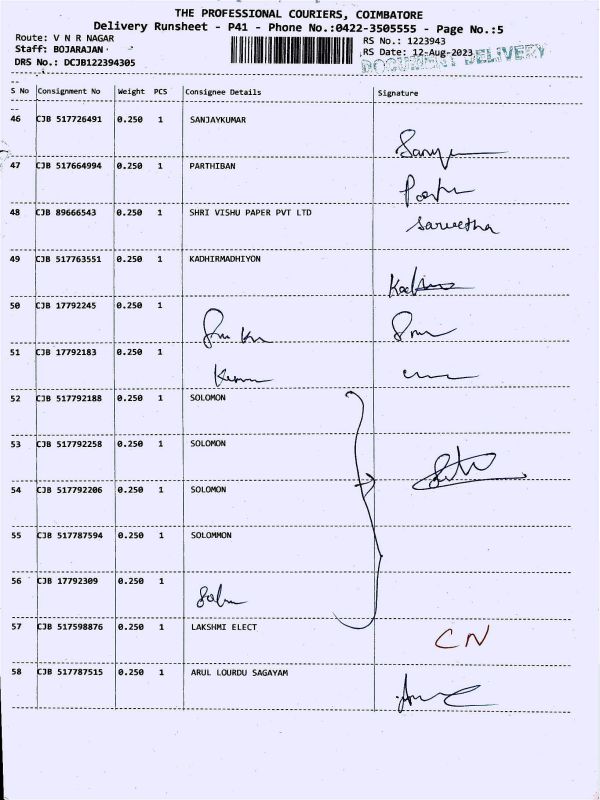 THE PROFESSIONAL COURIERS, COIMBATORE
Delivery Runsheet - P41 - Phone No.:0422-3505555 - Page No.:5
Route: V N R NAGAR
RS No.: 1223943
Staff: BOJARAJAN
RS Date: 12-Aug-2023
DOCUMENT DELIVERY
DRS No.: DCJB122394305
S No Consignment No Weight PCS Consignee Details Signature
46 CJB 517726491 0.250 1 SANJAYKUMAR
47 CJB 517664994 0.250 1 PARTHIBAN
48 CJB 89666543 0.250 1 SHRI VISHU PAPER PVT LTD
sarweetha
49 CJB 517763551 0.250 1 KADHIRMADHIYON
50 CJB 17792245 0.250 1
51 CJB 17792183 0.250 1
52 CJB 517792188 0.250 1 SOLOMON
53 CJB 517792258 0.250 1 SOLOMON
54 CJB 517792206 0.250 1 SOLOMON
55 CJB 517787594 0.250 1 SOLOMMON
56 CJB 17792309 0.250 1
57 CJB 517598876 0.250 1 LAKSHMI ELECT CN
58 CJB 517787515 0.250 1 ARUL LOURDU SAGAYAM